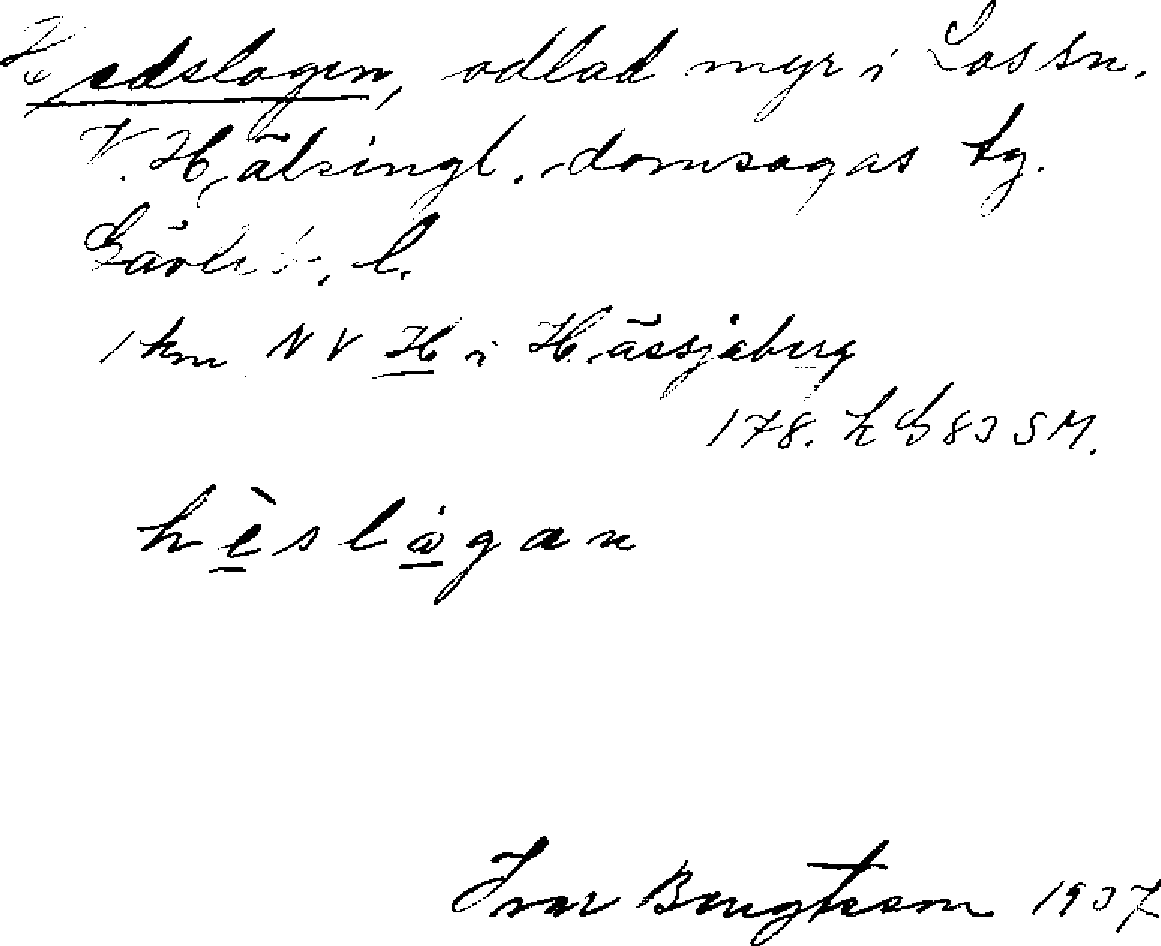 Hedslogen, odlad myr i Los sn.
V. Hälsingl. domsagas tg.
Gävleb. l.
1 km NV H i Hässjaberg
178. LG 83 SM.
hèslågan
Ivar Bengtsson 1937